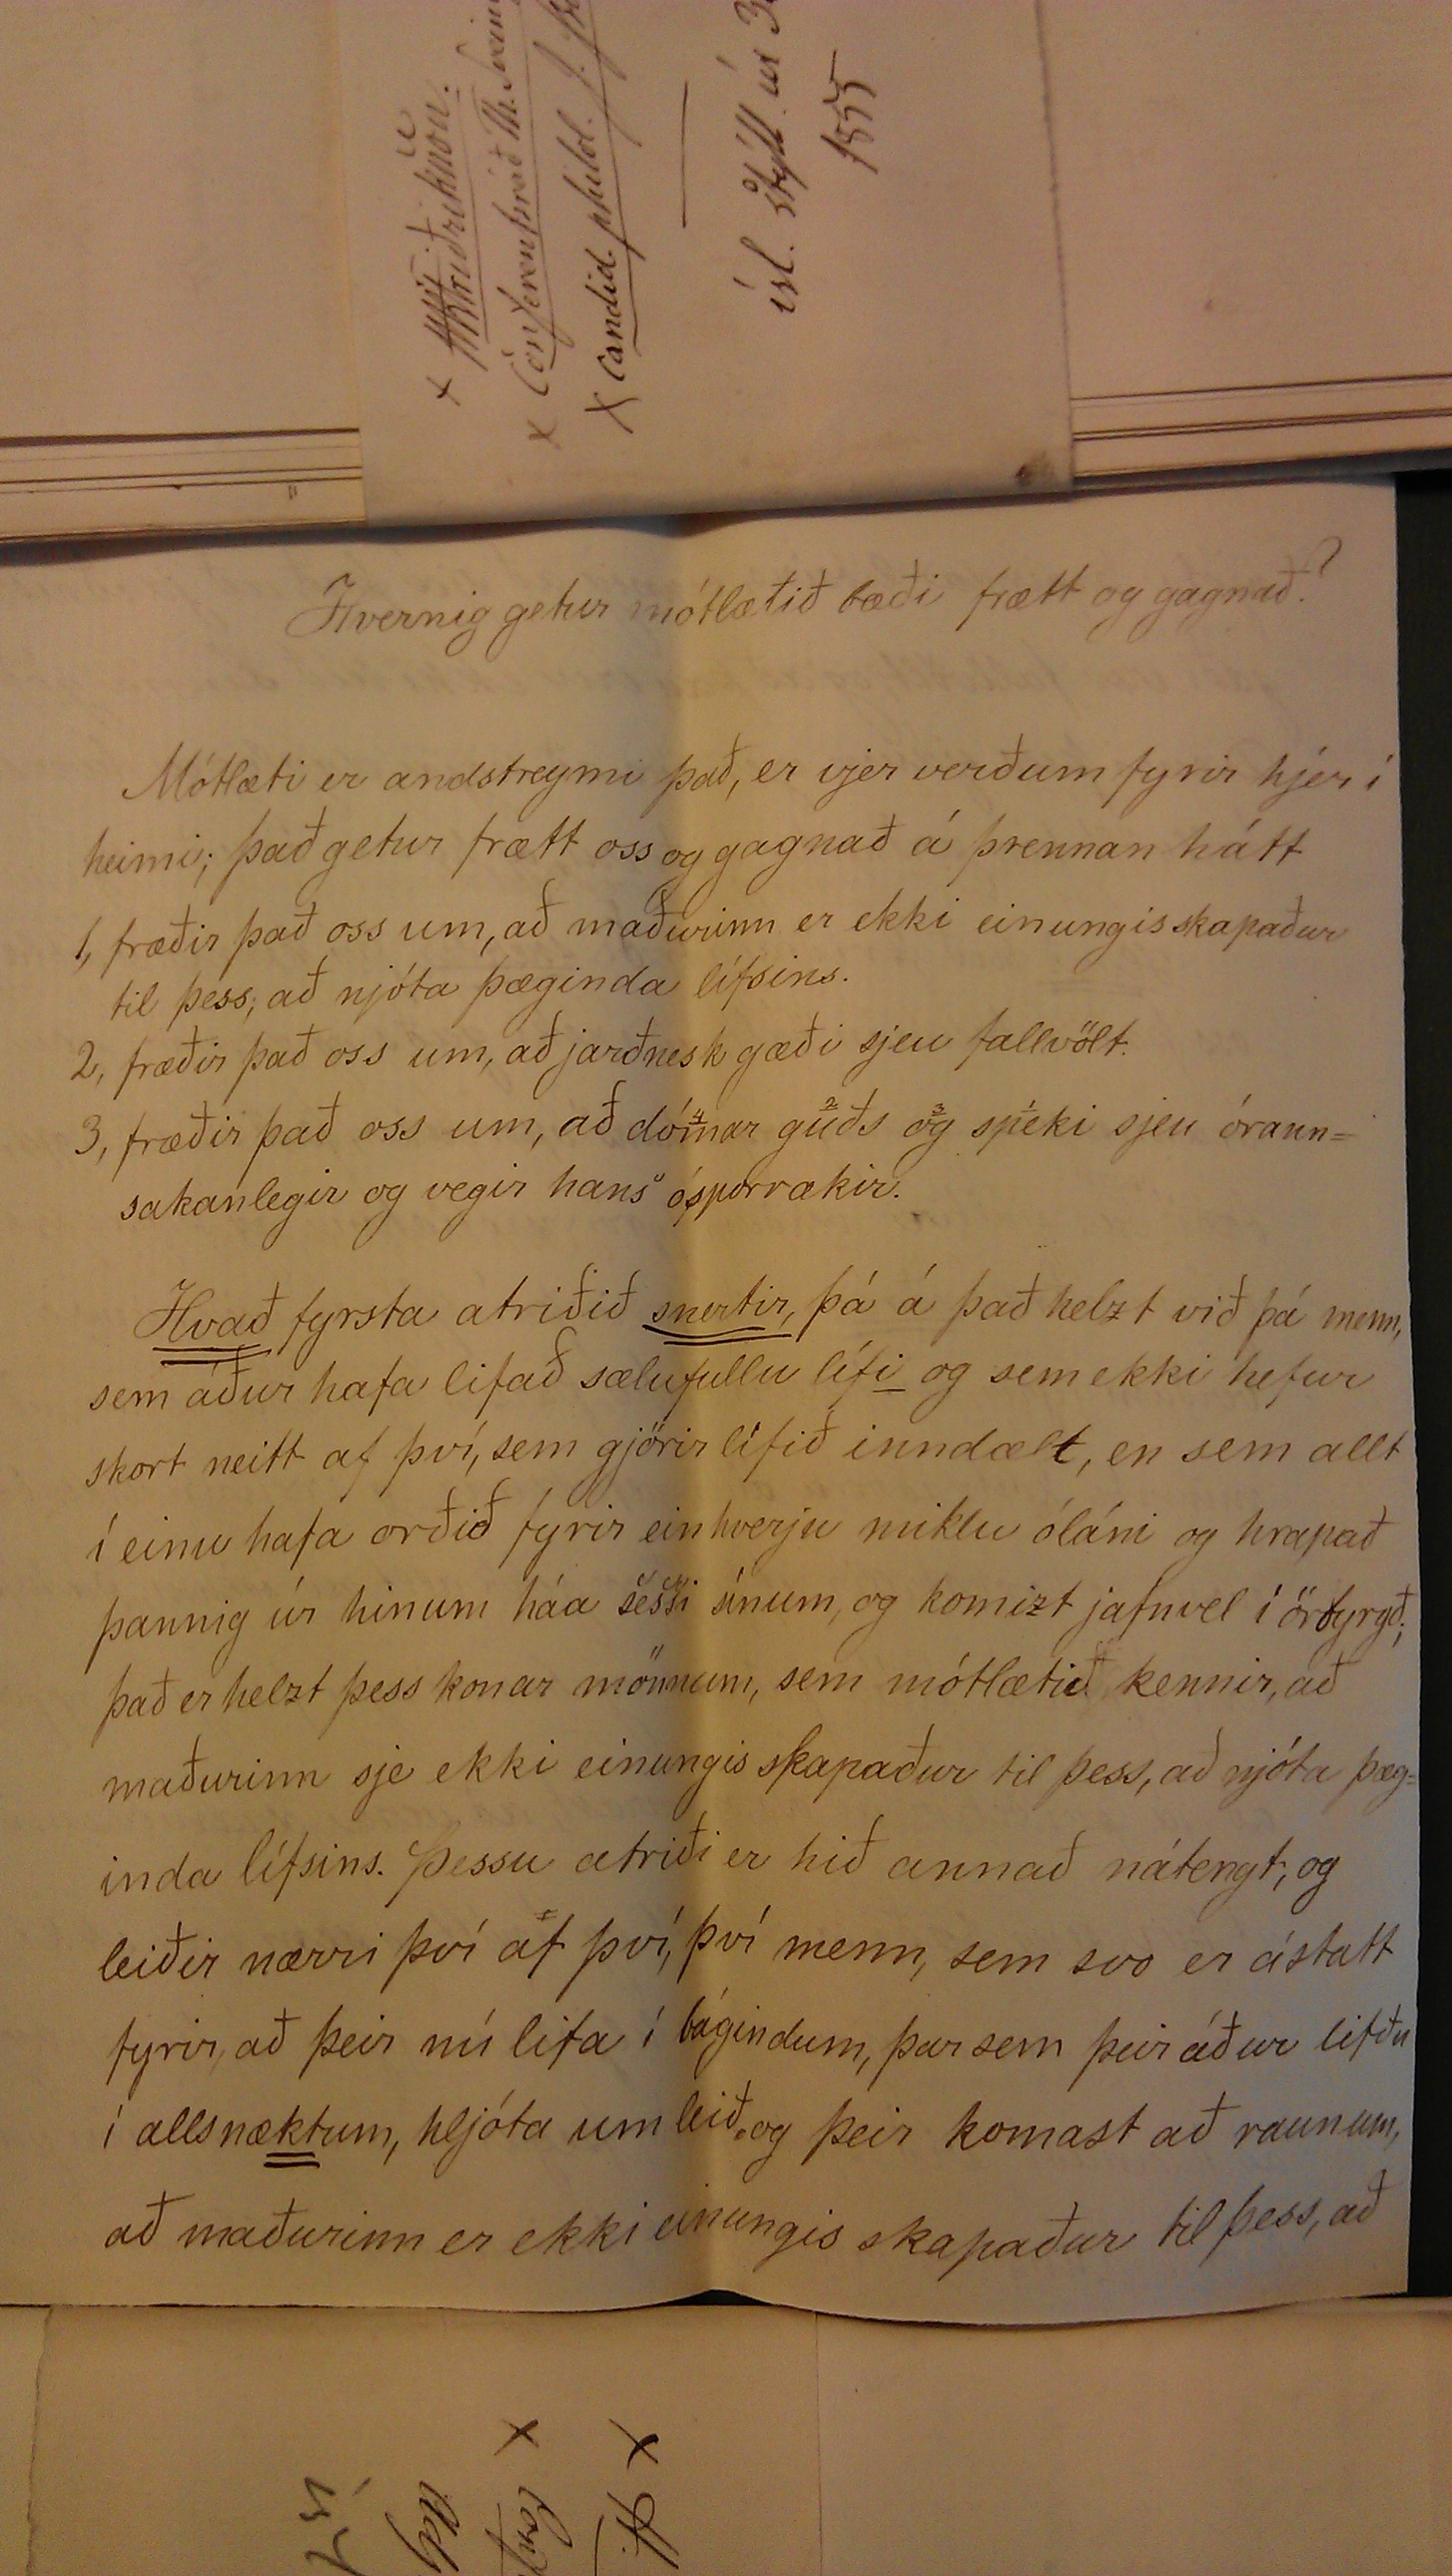 Conferentsráð Th.
x Candid. philol. J.
ísl. stýll. úr 3
1855
Hvernig getur mótlætið bæði frætt og gagnað?
Mótlæti er andstreymi það, er vjer verðum fyrir hjer í
heimi; það getur frætt oss og gagnað á þrennan hátt
1, fræðir það oss um, að maðurinn er ekki einungis skapaður
til þess, að njóta þæginda lífsins.
2, fræðir það oss um, að jarðnesk gæði sjeu fallvölt.
3, fræðir það oss um, að dómar guðs og speki sjeu órann=
sakanlegir og vegir hans ósporrækir.
Hvað fyrsta atriðið snertir, þá á það helzt við þá menn,
sem áður hafa lifað sælufullu lífi og sem ekki hefur
skort neitt af því, sem gjörir lífið inndælt, en sem allt
í einu hafa orðið fyrir einhverju miklu óláni og hrapað
þannig úr hinum háa sessi sínum, og komizt jafnvel í örbyrgð;
það er helzt þess konar mönnum, sem mótlætið kennir, að
maðurinn sje ekki einungis skapaður til þess, að njóta þæg=
inda lífsins. Þessu atriði er hið annað nátengt, og
leiðir nærri því af því, því menn, sem svo er ástatt
fyrir, að þeir nú lifa í bágindum, þar sem þeir áður lifðu
í allsnæktum, hljóta um leið og þeir komast að raunum,
að maðurinn er ekki einungis skapaður til þess, að